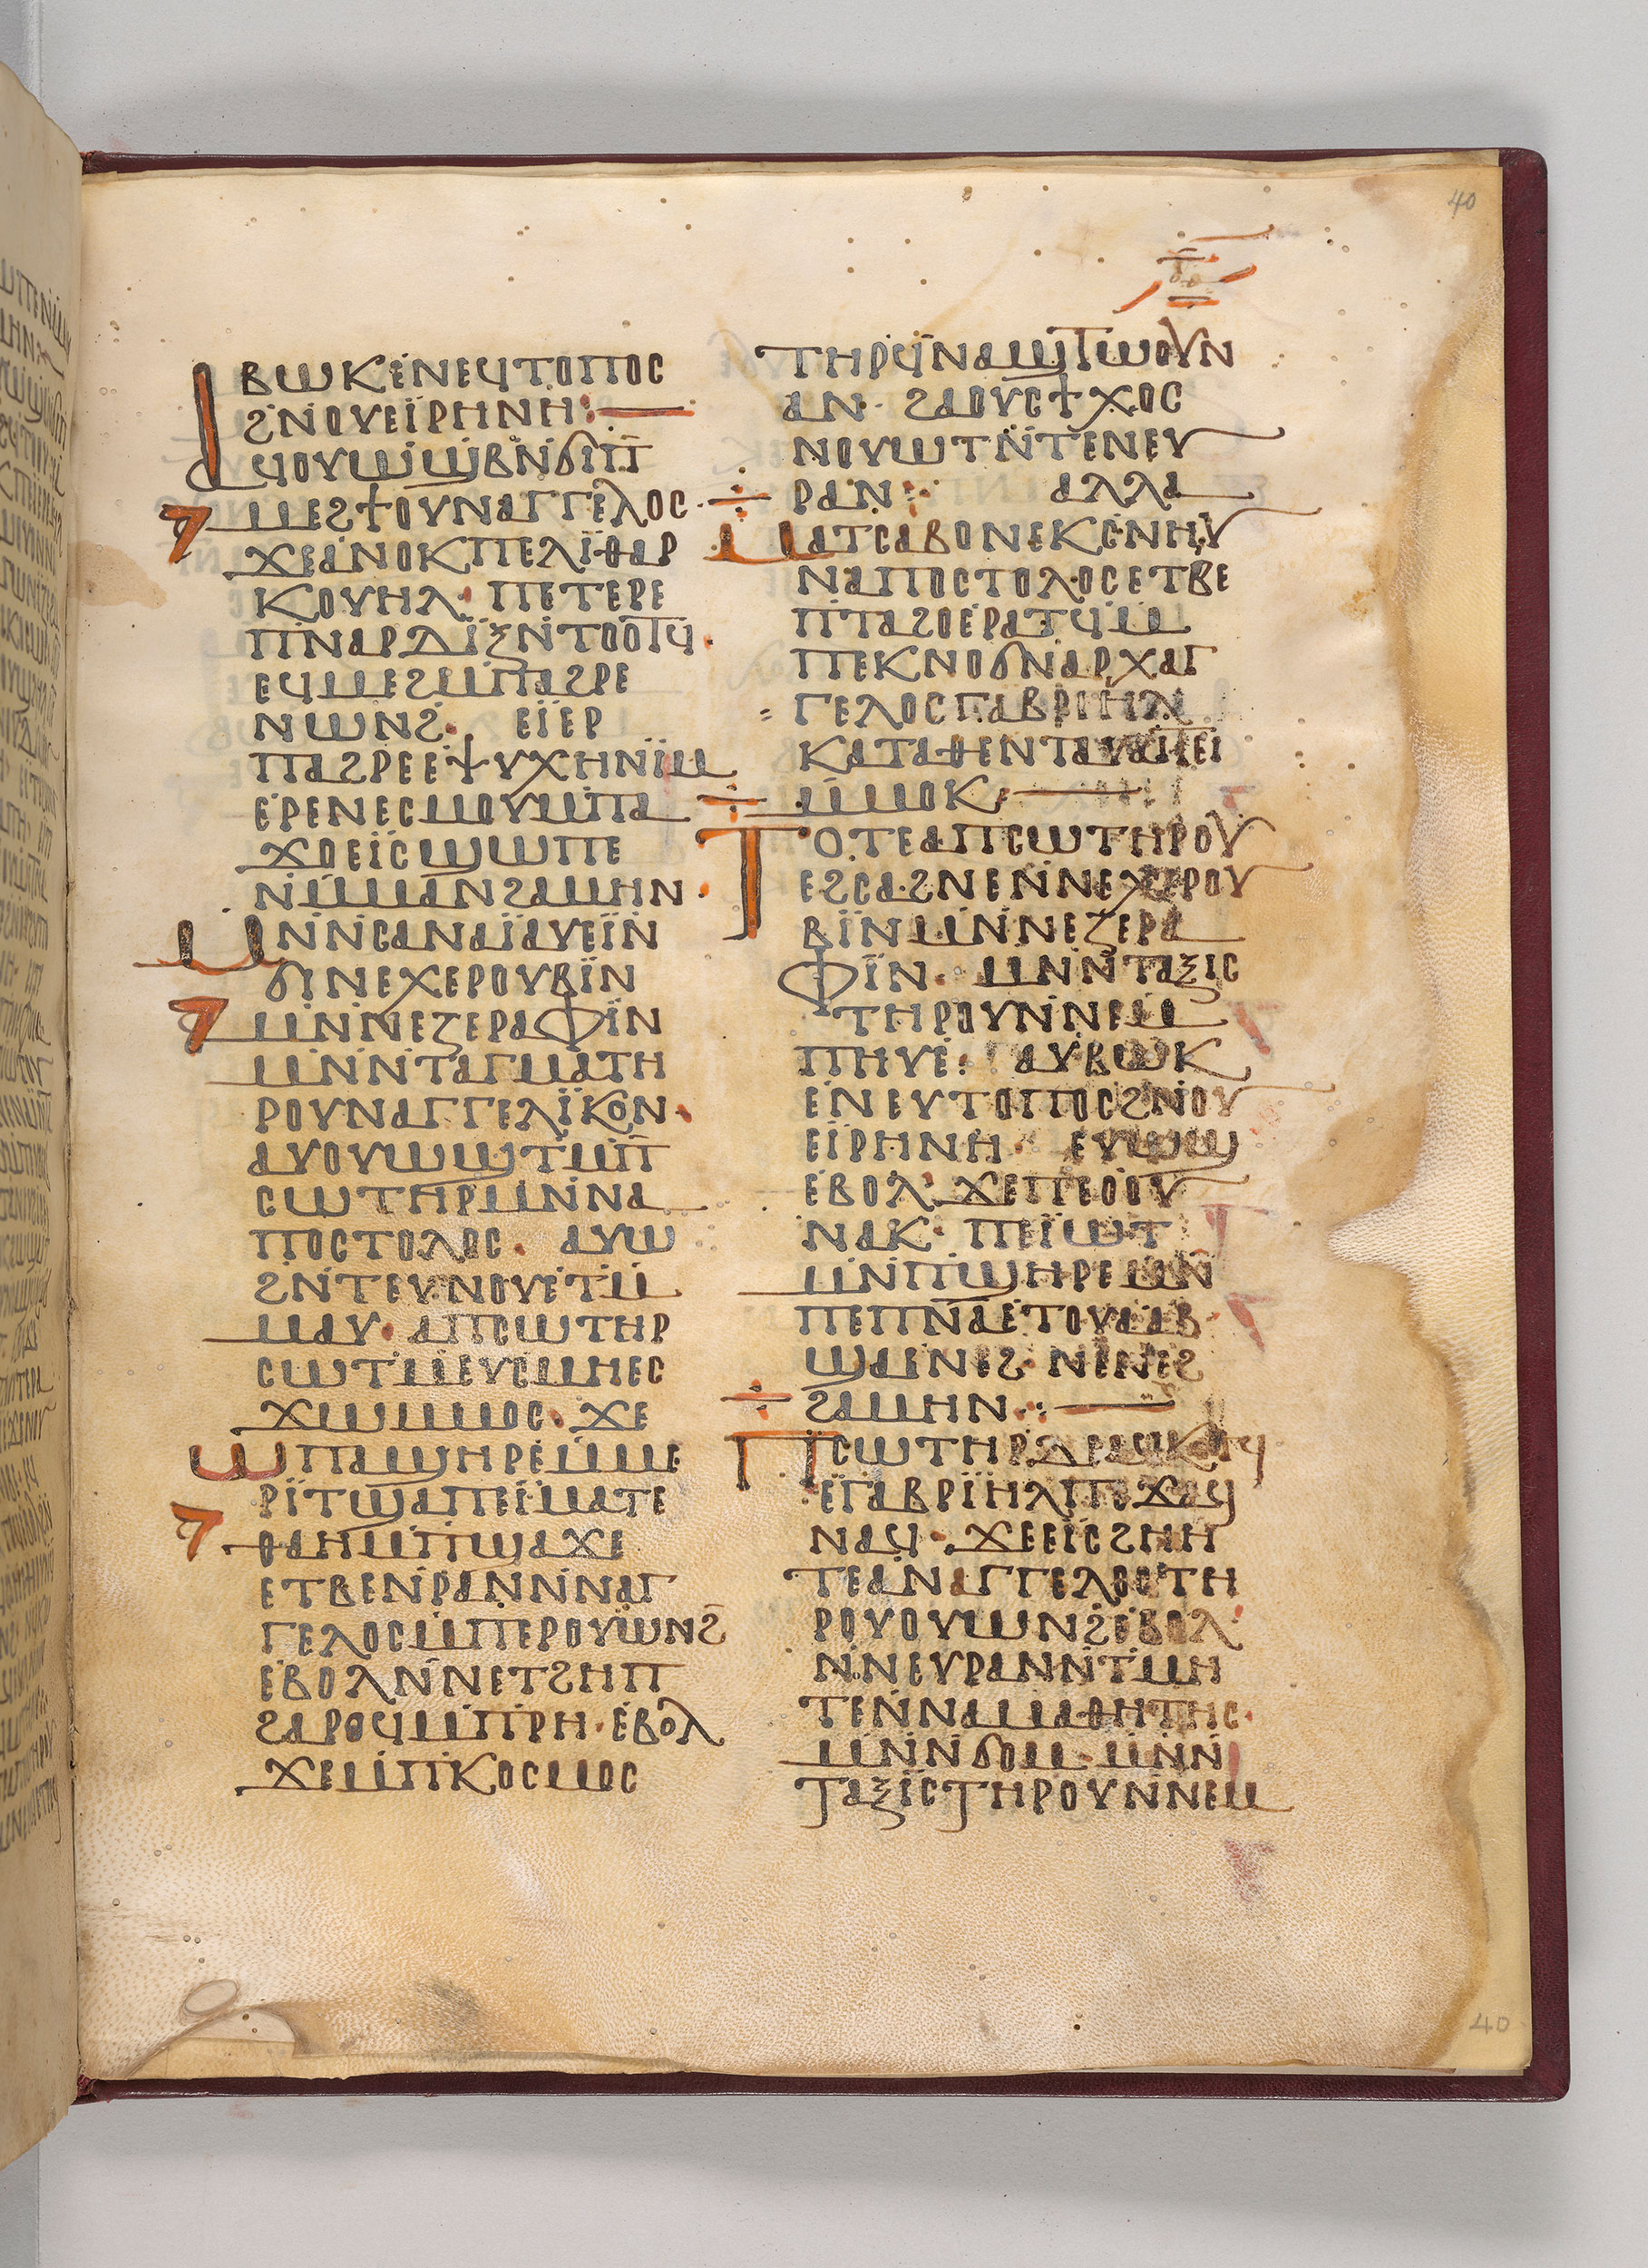 40
ⲃⲱⲕⲉⲛⲉϥⲧⲟⲡⲟⲥ
ϩⲛⲟⲩⲉⲓ̈ⲣⲏⲛⲏ:—
ϥⲟⲩⲱϣⲃⲛ̄ϭⲓⲡ
ⲙⲉϩϯⲟⲩⲛⲁⲅⲅⲉⲗⲟⲥ·
ϫⲉⲁⲛⲟⲕⲡⲉⲗⲓ̈ⲑⲁⲣ
ⲕⲟⲩⲏⲗ· ⲡⲉⲧⲉⲣⲉ
ⲡⲛⲁⲣⲇⲓ̈ⲝⲛ̄ⲧⲟⲟⲧϥ·
ⲉϥⲙⲉϩⲙ̄ⲡⲁϩⲣⲉ
ⲛⲱⲛϩ· ⲉⲓ̈ⲉⲣ
ⲡⲁϩⲣⲉⲉⲯⲩⲭⲏⲛⲓ̈ⲙ
ⲉⲣⲉⲛⲉⲥⲙⲟⲩⲙ̄ⲡⲁ
ϫⲟⲉⲓ̈ⲥϣⲱⲡⲉ
ⲛⲙ̄ⲙⲁⲛϩⲁⲙⲏⲛ·
ⲙⲛ̄ⲛ̄ⲥⲁⲛⲁⲓ̈ⲁⲩⲉⲓ̈ⲛ̄
ϭⲓⲛⲉⲭⲉⲣⲟⲩⲃⲓ̈ⲛ
ⲙⲛ̄ⲛⲉⲍⲉⲣⲁⲫⲓ̈ⲛ
ⲙⲛ̄ⲛ̄ⲧⲁⲅⲙⲁⲧⲏ
ⲣⲟⲩⲛⲁⲅⲅⲉⲗⲓ̈ⲕⲟⲛ·
ⲁⲩⲟⲩⲱϣⲧⲙ̄ⲡ
ⲥⲱⲧⲏⲣⲙⲛ̄ⲛⲁ
ⲡⲟⲥⲧⲟⲗⲟⲥ· ⲁⲩⲱ
ϩⲛ̄ⲧⲉⲩⲛⲟⲩⲉⲧⲙ̄
ⲙⲁⲩ· ⲁⲡⲥⲱⲧⲏⲣ
ⲥⲱⲧⲙ̄ⲉⲩⲥⲙⲏⲉⲥ
ϫⲱⲙ̄ⲙⲟⲥ· ϫⲉ
ⲱⲡⲁϣⲏⲣⲉⲙ̄ⲙⲉ
ⲣⲓ̈ⲧϣⲁⲡⲉⲓ̈ⲙⲁⲧⲉ
ⲑⲁⲏⲙ̄ⲡϣⲁϫⲉ
ⲉⲧⲃⲉⲛ̄ⲣⲁⲛⲛ̄ⲛⲁⲅ
ⲅⲉⲗⲟⲥⲙ̄ⲡⲉⲣⲟⲩⲱⲛϩ
ⲉⲃⲟⲗⲛ̄ⲛⲉⲧϩⲏⲡ
ϩⲁⲣⲟϥⲙ̄ⲡⲣⲏ·ⲉⲃⲟⲗ
ϫⲉⲙ̄ⲡⲕⲟⲥⲙⲟⲥ
ⲧⲏⲣϥⲛⲁϣⲧⲱⲟⲩⲛ
ⲁⲛ· ϩⲁⲟⲩⲥϯⲭⲟⲥ
ⲛⲟⲩⲱⲧⲛ̄ⲧⲉⲛⲉⲩ
ⲣⲁⲛ: ⲁⲗⲗⲁ
ⲙⲁⲧⲥⲁⲃⲟⲛⲉⲕⲥⲛⲏⲩ
ⲛⲁⲡⲟⲥⲧⲟⲗⲟⲥⲉⲧⲃⲉ
ⲡⲧⲁϩⲟⲉⲣⲁⲧϥⲙ̄
ⲡⲉⲕⲛⲟϭⲛ̄ⲁⲣⲭⲁⲅ
ⲅⲉⲗⲟⲥⲅⲁⲃⲣⲓⲏⲗ
ⲕⲁⲧⲁⲑⲉⲛⲧⲁⲩⲁⲓⲧⲉⲓ
ⲙ̄ⲙⲟⲕ:—
ⲧⲟⲧⲉⲁⲡⲥⲱⲧⲏⲣⲟⲩ
ⲉϩⲥⲁϩⲛⲉⲛ̄ⲛⲉⲭⲉⲣⲟⲩ
ⲃⲓ̈ⲛⲙⲛ̄ⲛⲉⲍⲉⲣⲁ
ⲫⲓ̈ⲛ· ⲙⲛ̄ⲛ̄ⲧⲁⲝⲓⲥ
ⲧⲏⲣⲟⲩⲛ̄ⲛⲉⲙ
ⲡⲏⲩⲉ: ⲁⲩⲃⲱⲕ
ⲉⲛⲉⲩⲧⲟⲡⲟⲥϩⲛⲟⲩ
ⲉⲓ̈ⲣⲏⲛⲏ· ⲉⲩⲱϣ
ⲉⲃⲟⲗ ϫⲉⲡⲉⲟⲟⲩ
ⲛⲁⲕ· ⲡⲉⲓ̈ⲱⲧ
ⲙⲛ̄ⲡϣⲏⲣⲉⲙⲛ̄
ⲡⲉⲡⲛ̄ⲁⲉⲧⲟⲩⲁⲁⲃ
ϣⲁⲉⲛⲉϩ· ⲛⲉⲛⲉϩ
ϩⲁⲙⲏⲛ:—
ⲡⲥⲱⲧⲏⲣⲇⲉⲁϥⲕⲟⲧϥ
ⲉⲅⲁⲃⲣⲓ̈ⲏⲗⲡⲉϫⲁϥ
ⲛⲁϥ· ϫⲉⲉⲓⲥϩⲏⲏ
ⲧⲉⲁⲛⲁⲅⲅⲉⲗⲟⲥⲧⲏ
ⲣⲟⲩⲟⲩⲱⲛϩⲉⲃⲟⲗ
ⲛ̄ⲛⲉⲩⲣⲁⲛⲛ̄ⲧⲙⲏ
ⲧⲉⲛ̄ⲛⲁⲙⲁⲑⲏⲧⲏⲥ·
ⲙⲛ̄ⲛ̄ϭⲟⲙ·ⲙⲛ̄ⲛ̄
ⲧⲁⲝⲓ̈ⲥⲧⲏⲣⲟⲩⲛ̄ⲛⲉⲙ
40